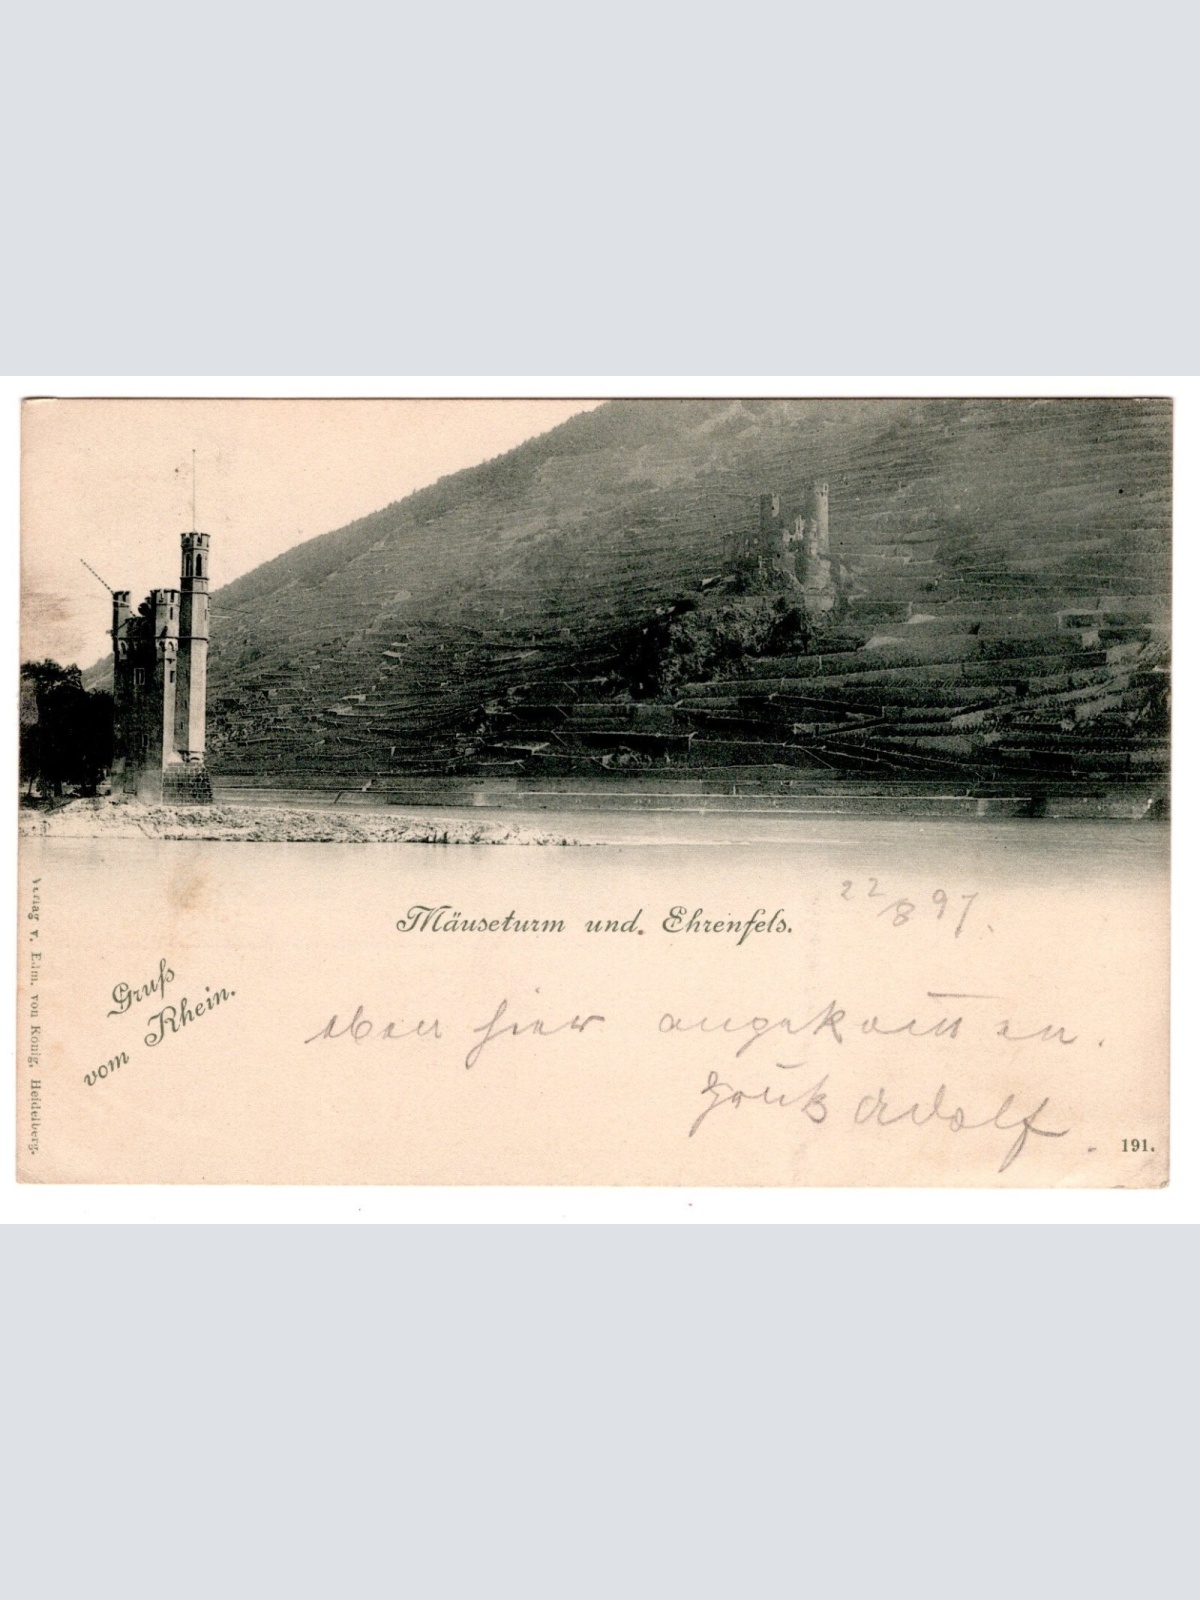 Mäuseturm und Ehrenfels.
22/8 97.
Gruß
vom Rhein.
eben hier angekom̅en.
Gruß Adolf
191.
Verlag v. Edm. von König, Heidelberg.